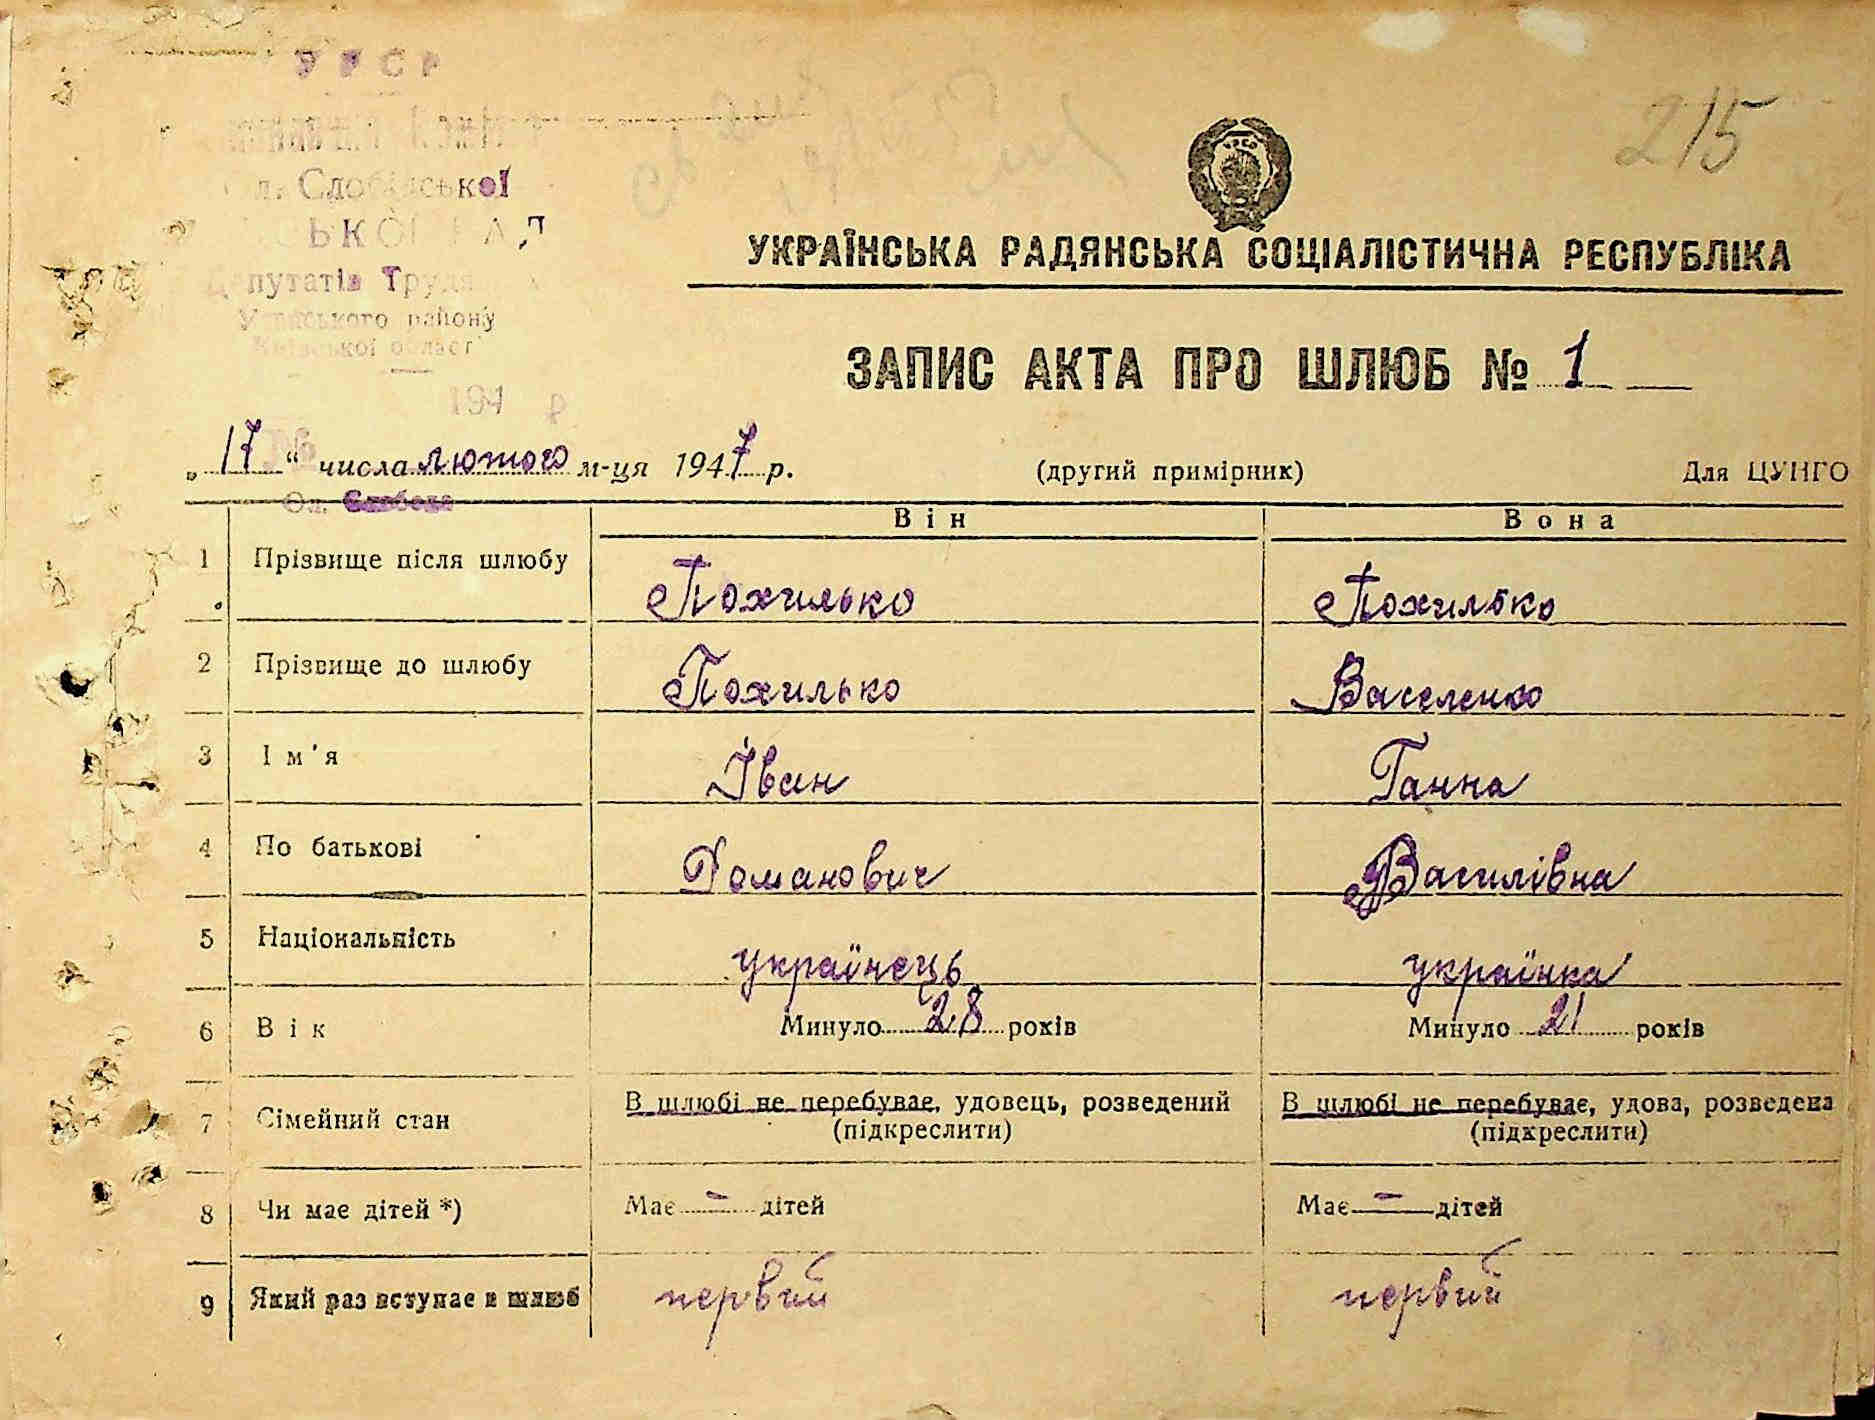 УРСР
Ол. Слобідської
Депутатів Трудящих
району
Київської області
194 р
№
Ол. Слобода
215
УКРАЇНСЬКА РАДЯНСЬКА СОЦІАЛІСТИЧНА РЕСПУБЛІКА
ЗАПИС АКТА ПРО ШЛЮБ № 1
„17“ числа лютого м-ця 1947 р. (другий примірник) Для ЦУНГО
Він Вона
1 Прізвище після шлюбу Похилько Похилько
2 Прізвище до шлюбу Похилько Василенко
3 Ім'я Іван Ганна
4 По батькові Романович Василівна
5 Національність українець українка
6 Вік Минуло 28 років Минуло 21 років
7 Сімейний стан В шлюбі не перебуває, удовець, розведений В шлюбі не перебуває, удова, розведена
(підкреслити) (підкреслити)
8 Чи має дітей *) Має – дітей Має – дітей
9 Який раз вступає в шлюб первий первий